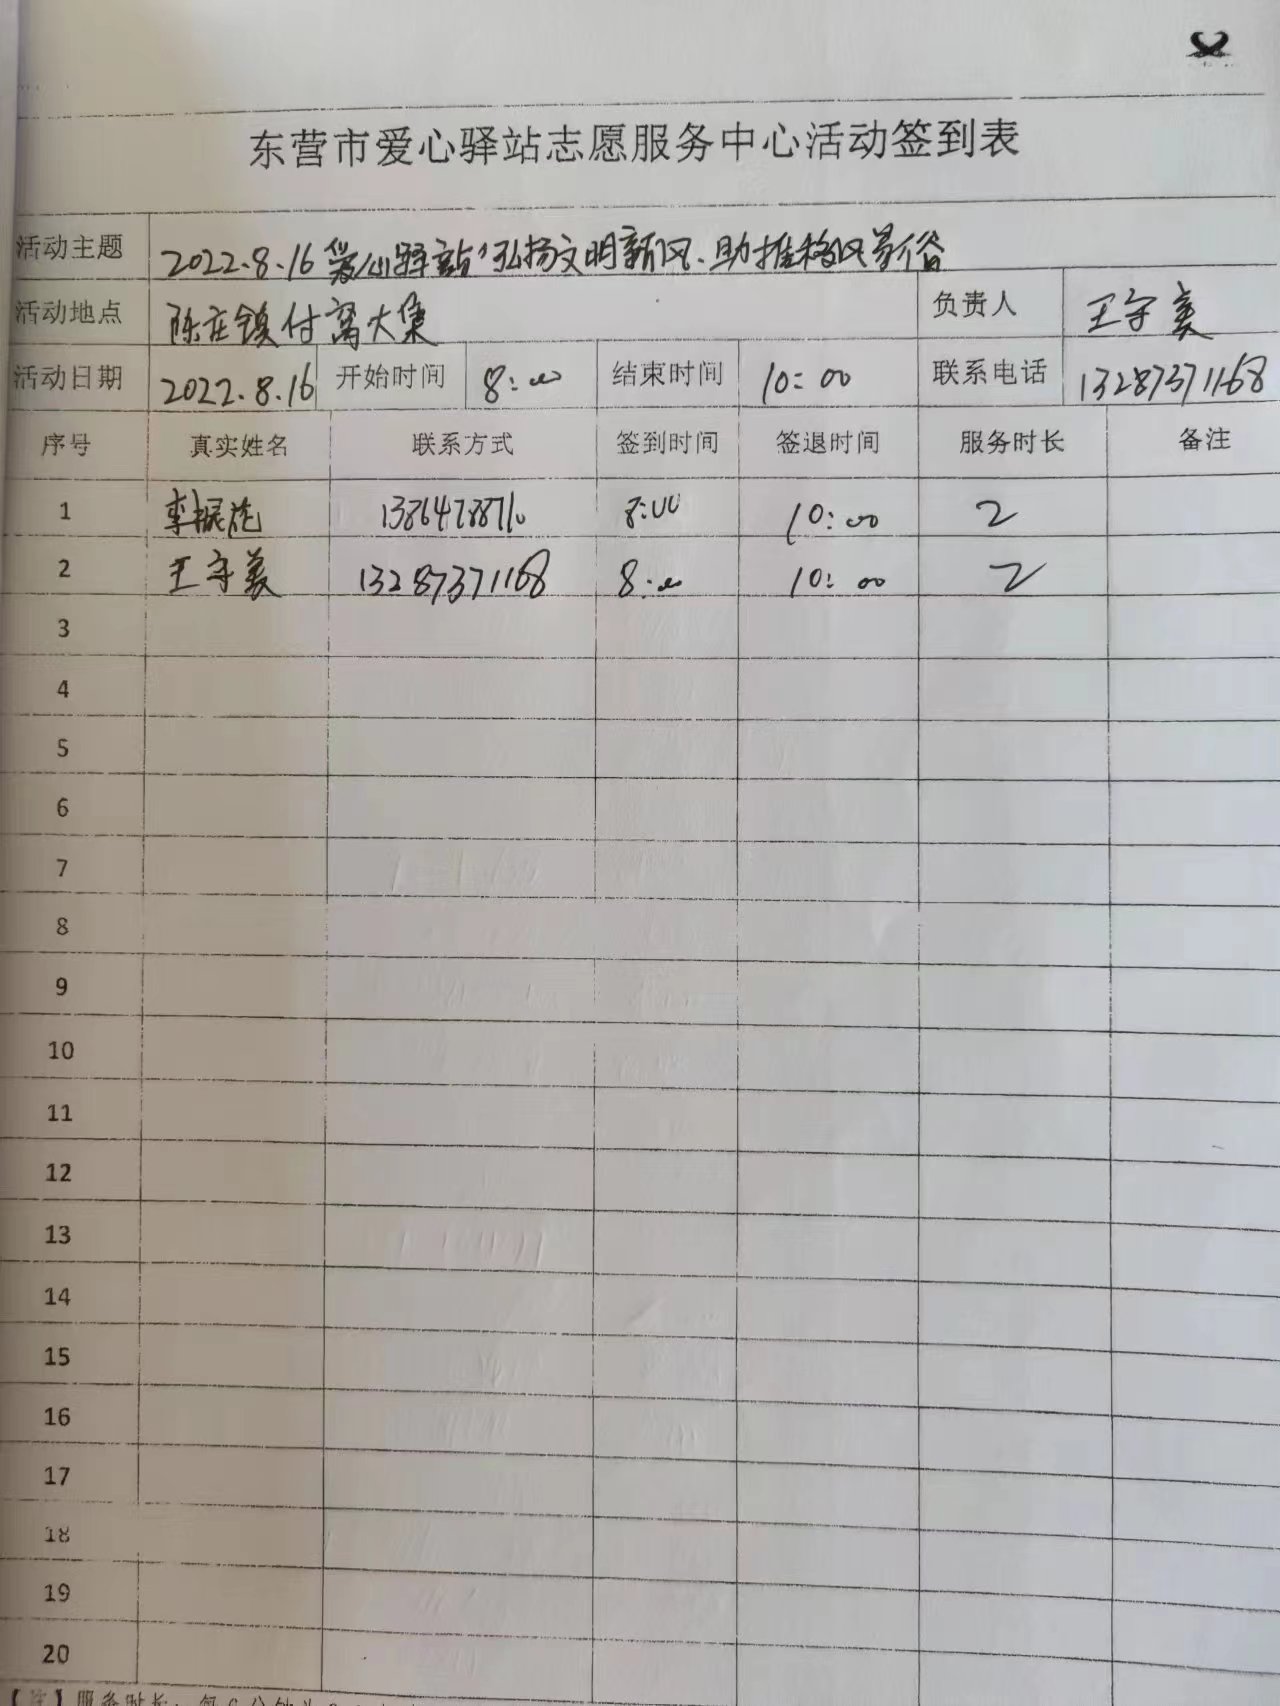 东营市爱心驿站志愿服务中心活动签到表
活动主题 2022.8.16 爱心驿站"弘扬文明新风、助推移风易俗
活动地点 陈庄镇付窝大集 负责人 王守美
活动日期 2022.8.16 开始时间 8:00 结束时间 10:00 联系电话 13287371168
序号 真实姓名 联系方式 签到时间 签退时间 服务时长 备注
1 李振 8:00 10:00 2
2 王守美 13287371168 8:00 10:00 2
3
4
5
6
7
8
9
10
11
12
13
14
15
16
17
18
19
20
【注】服务时长：每6分钟为0